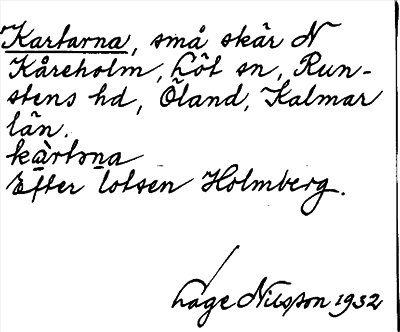 Kartarna, små skär N
Kåreholm, Löt sn, Run-
stens hd, Öland, Kalmar
län.
kàrtəna
Efter lotsen Holmberg.
Låge Nilsson 1932